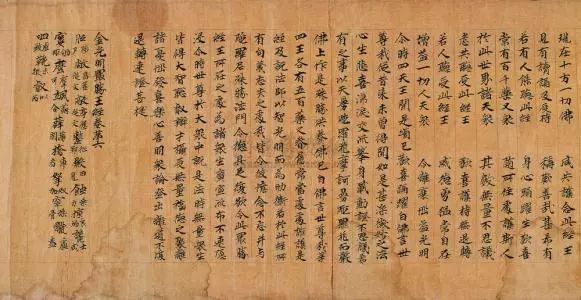 現在十方一切佛　咸共護念此經王
見有讀誦及受持　稱歎善哉甚希有
若有人能聽此經　身心踊躍生歡喜
常有百千藥叉眾　隨所住處護斯人
於此世界諸天眾　其數無量不思議
悉共聽受此經王　歡喜護持無退轉
若人聽受此經王　威德勇猛常自在
增益一切人天眾　令離衰惱益光明
尒時四天王聞是頌已歡喜踊躍白佛言世
尊我從昔來未曾得聞如是甚深微妙之法
心生悲喜涕淚交流舉身戰動證不思議希
有之事以天曼陀羅花摩訶曼陀羅花而散
佛上作是殊勝供養佛已白佛言世尊我等
四王各有五百藥叉眷屬常當處處擁護是
經及說法師以智光明而為助衛若於此經所
有句義忘失之處我皆令彼憶念不忘并與
陀羅尼殊勝法門令得具足復欲令此最勝
經王所在之處為諸眾生廣宣流布不速隱
沒尒時世尊於大眾中說是法時無量眾生
皆得大智聰叡辯才攝受無量福德之聚離
諸憂惱發喜樂心善明眾論登出離道不復
退轉速證菩提
金光明最勝王經卷第六